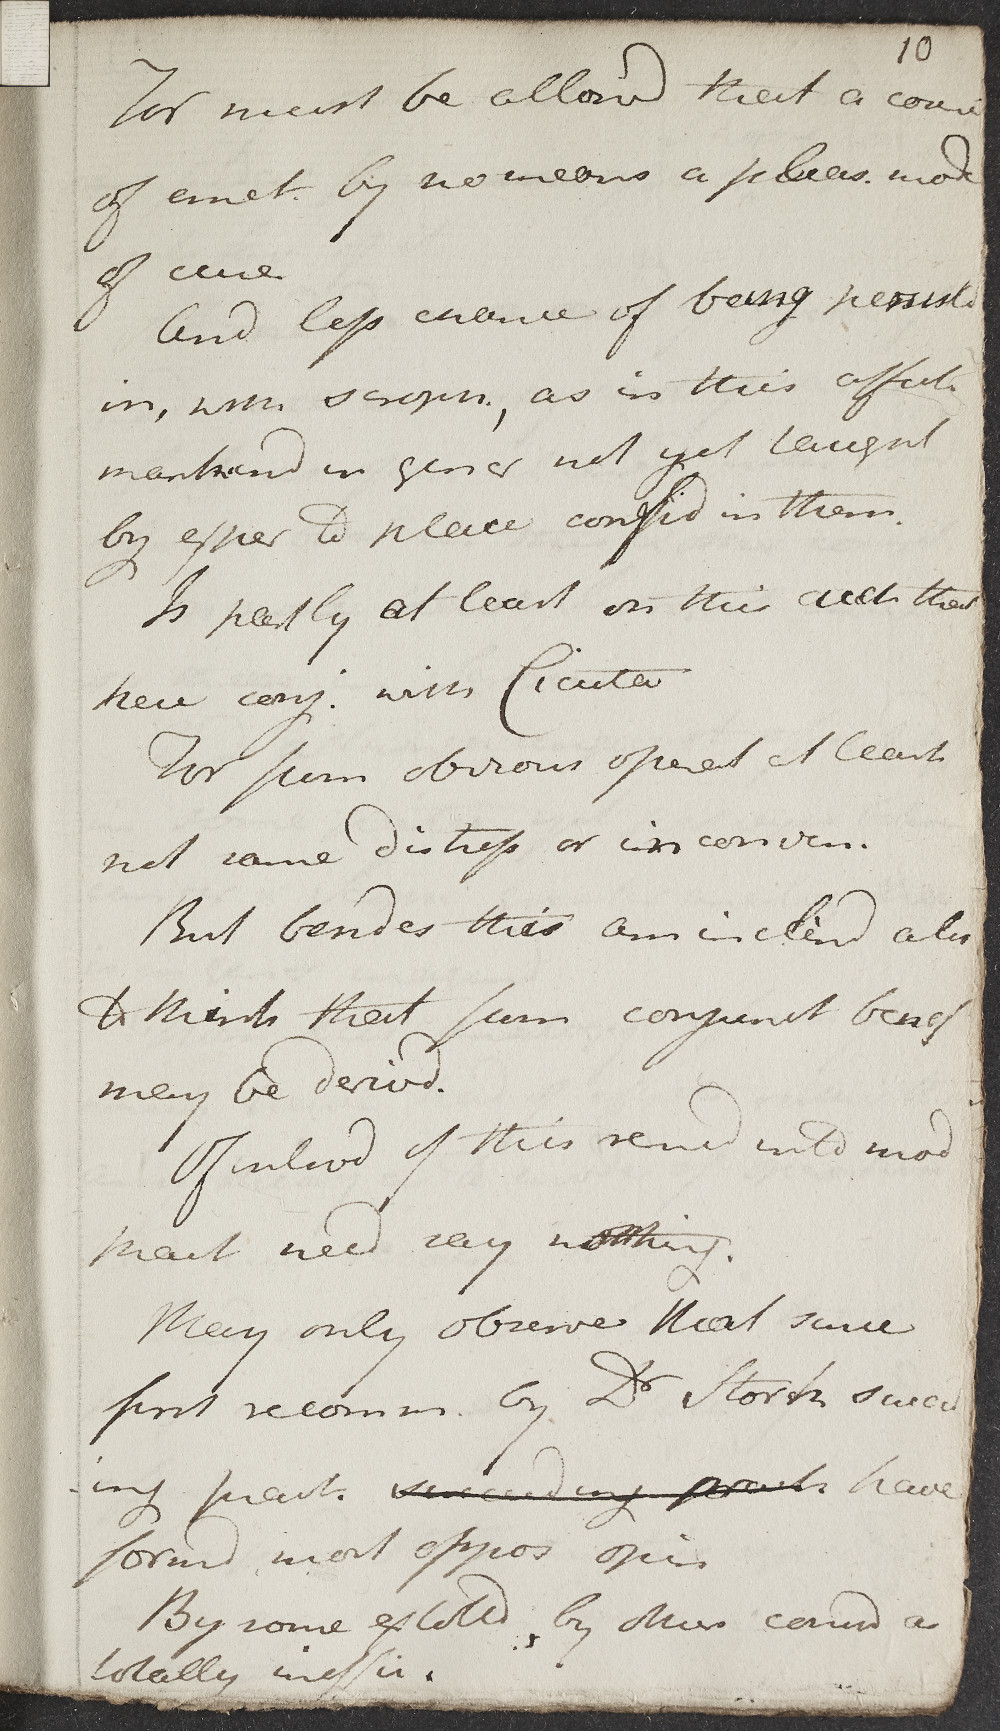 10
For must be allowd that a cour
of emet. by no means a pleas. mode
of cure
And less chance of being persistd
in, with scroph., as in this affect.
mankind in gener not yet taught
by exper to place confid in them.
Is partly at least on this acct that
here conj. with Cicuta
For from obvious operat at least
not same distress or inconven.
But besides this am inclind also
to think that from conjunct benef
may be derivd.
Of introd of this remed into mod
pract need say nothing.
May only observe that since
first recomm. by Dr Storck succeed
ing pract. succeeding pract. have
formd most oppos opin
By some extolld, by others consid as
totally ineffic.